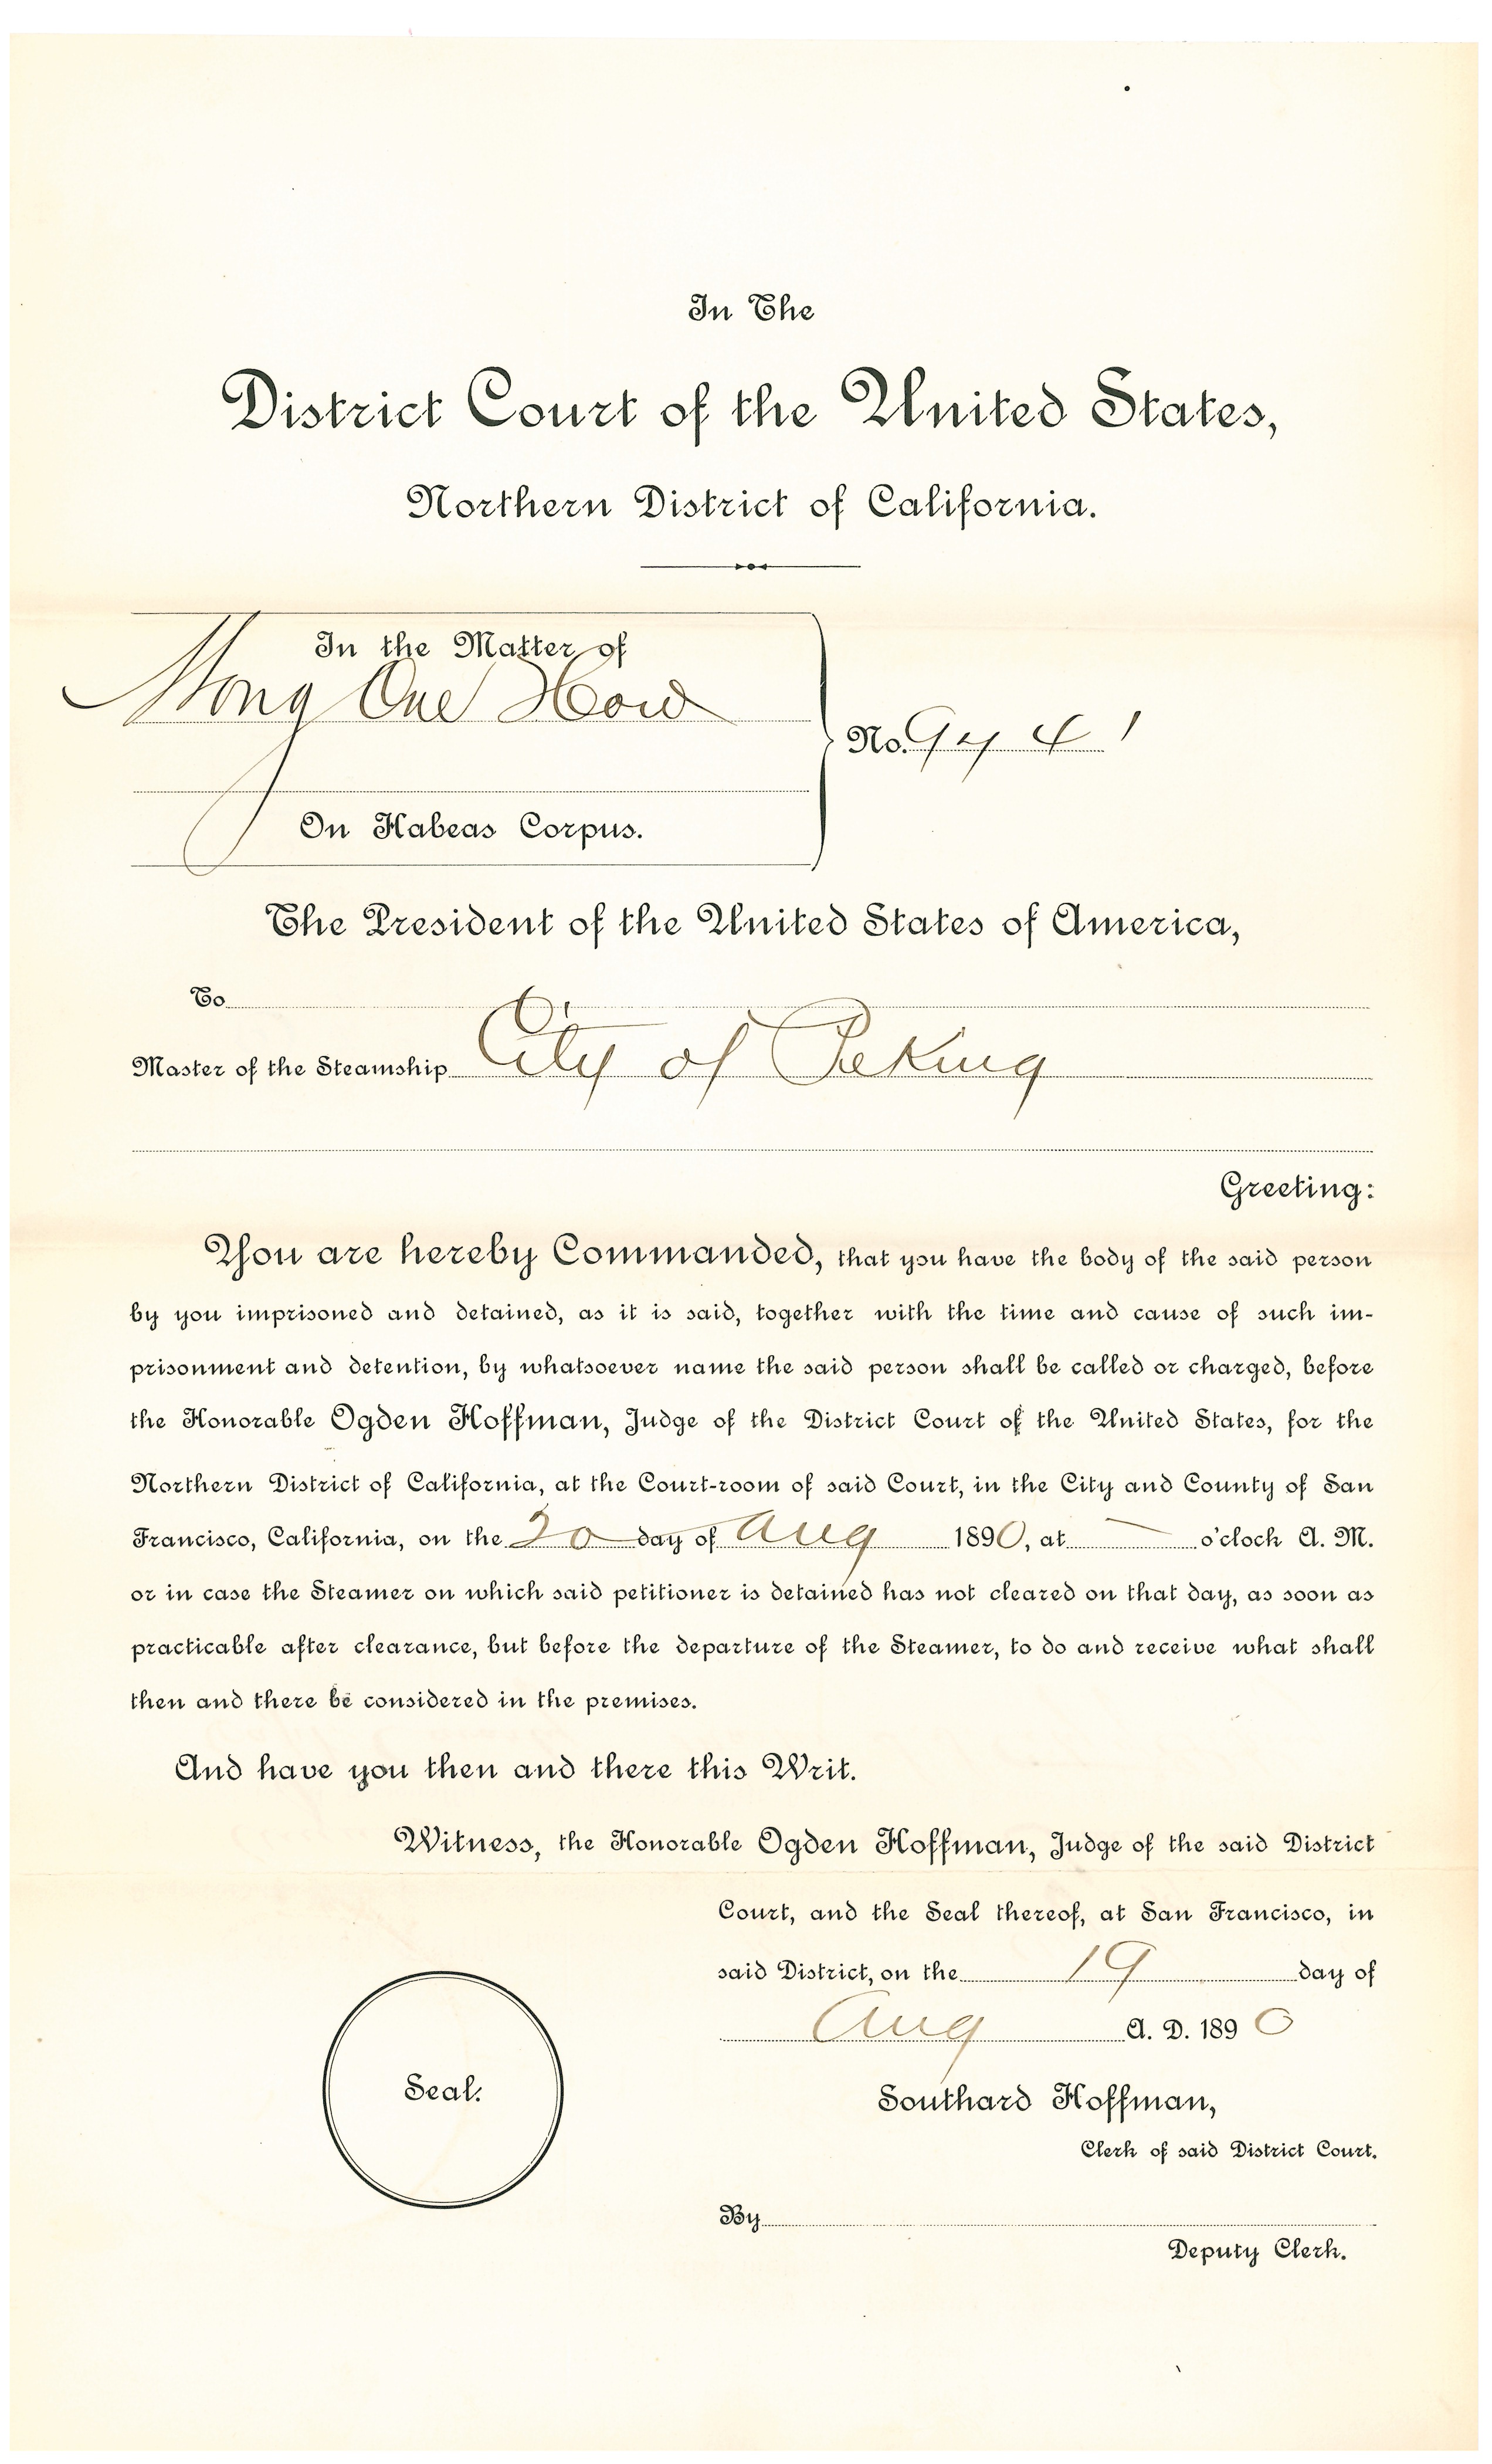 In The
District Court of the United States,
Northern District of California.
In the Matter of
Wong One How
On Habeas Corpus.
No. 9741
The President of the United States of America,
To
Master of the Steamship City of Peking
Greeting:
You are hereby Commanded, that you have the body of the said person
by you imprisoned and detained, as it is said, together with the time and cause of such im-
prisonment and detention, by whatsoever name the said person shall be called or charged, before
the Honorable Ogden Hoffman, Judge of the District Court of the United States, for the
Northern District of California, at the Court-room of said Court, in the City and County of San
Francisco, California, on the 20 day of Aug 1890, at — o'clock A. M.
or in case the Steamer on which said petitioner is detained has not cleared on that day, as soon as
practicable after clearance, but before the departure of the Steamer, to do and receive what shall
then and there be considered in the premises.
And have you then and there this Writ.
Witness, the Honorable Ogden Hoffman, Judge of the said District
Court, and the Seal thereof, at San Francisco, in
said District, on the 19 day of
Aug A. D. 1890
Seal.
Southard Hoffman,
Clerk of said District Court.
By
Deputy Clerk.